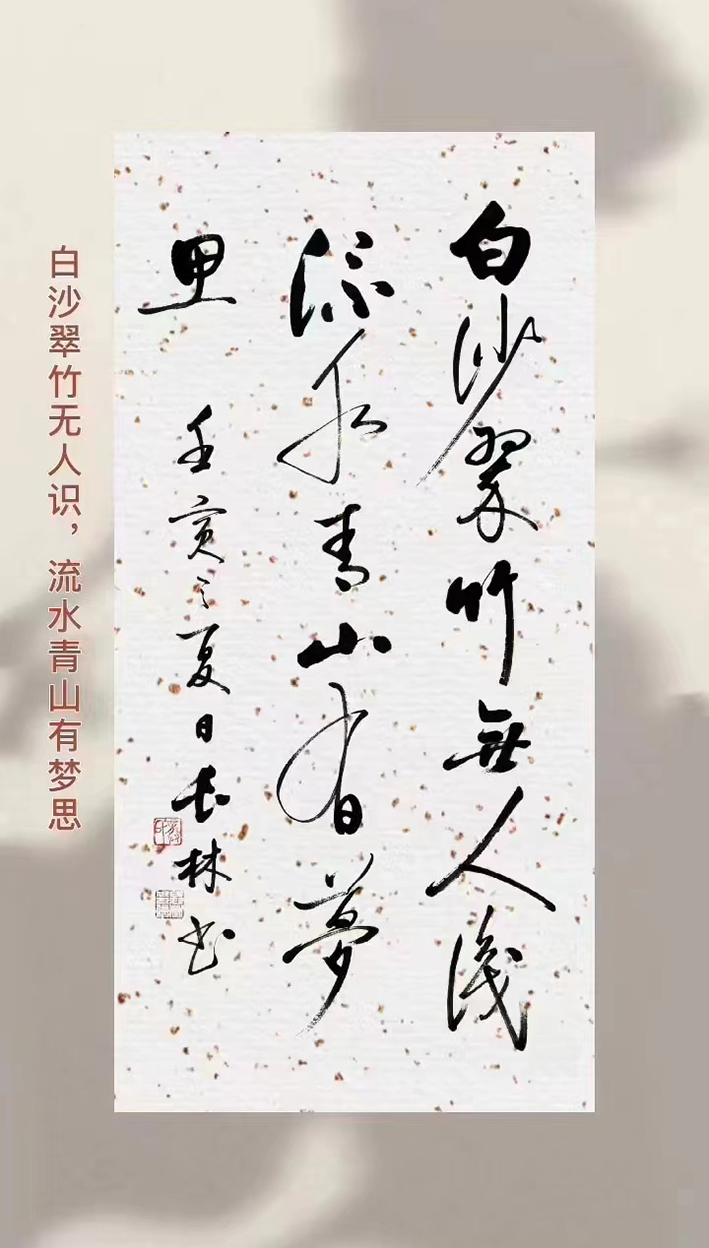 白沙翠竹無人識
流水青山有夢
思 壬寅之夏日長林书
白沙翠竹无人识，流水青山有梦思